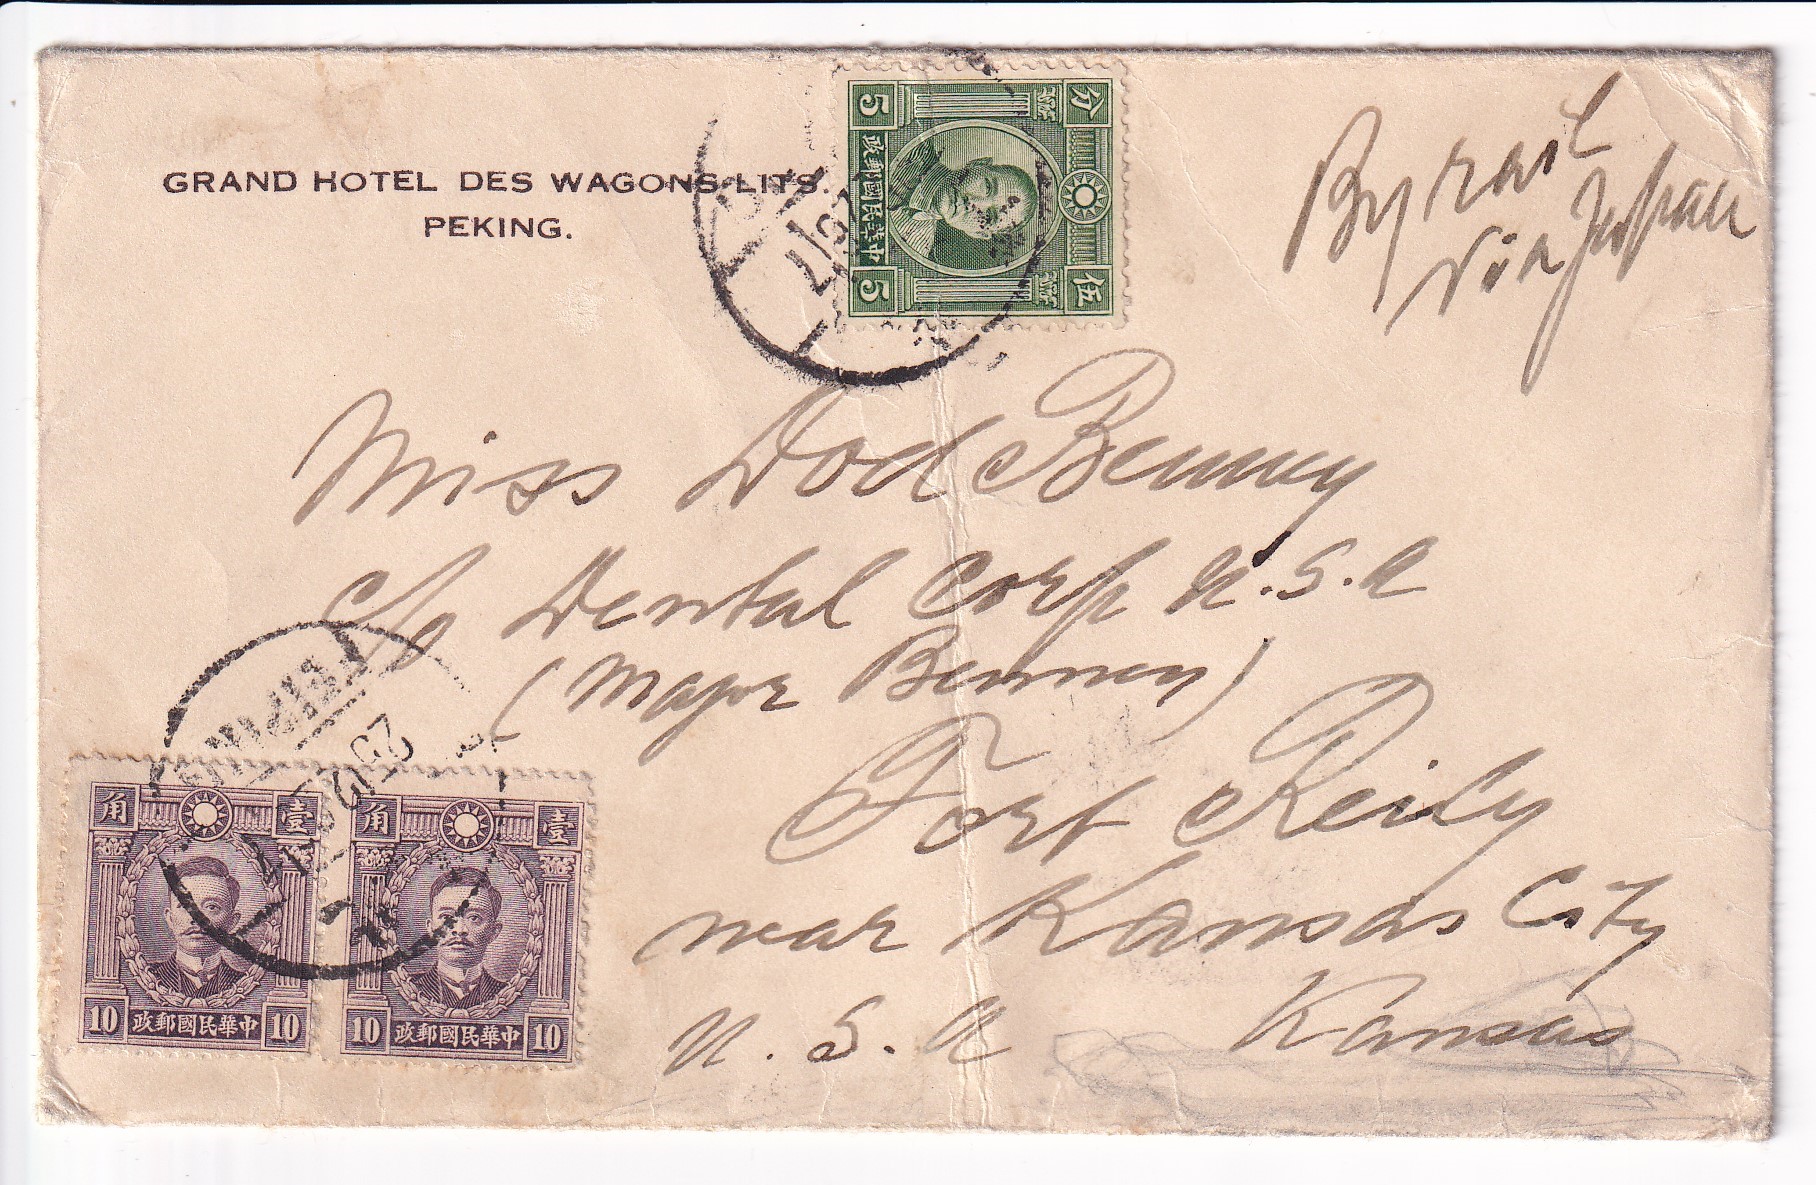 GRAND HOTEL DES WAGONS-LITS.
PEKING.
5 分
中華民國郵政
5 伍
By rail
via Japan
Miss Dod Benney
c/o Dental Corp U.S.A
(Major Benney)
Fort Reily
near Kansas City
U.S.A Kansas
PEIPING
25
角 壹
10 政郵國民華中 10
角 壹
10 政郵國民華中 10